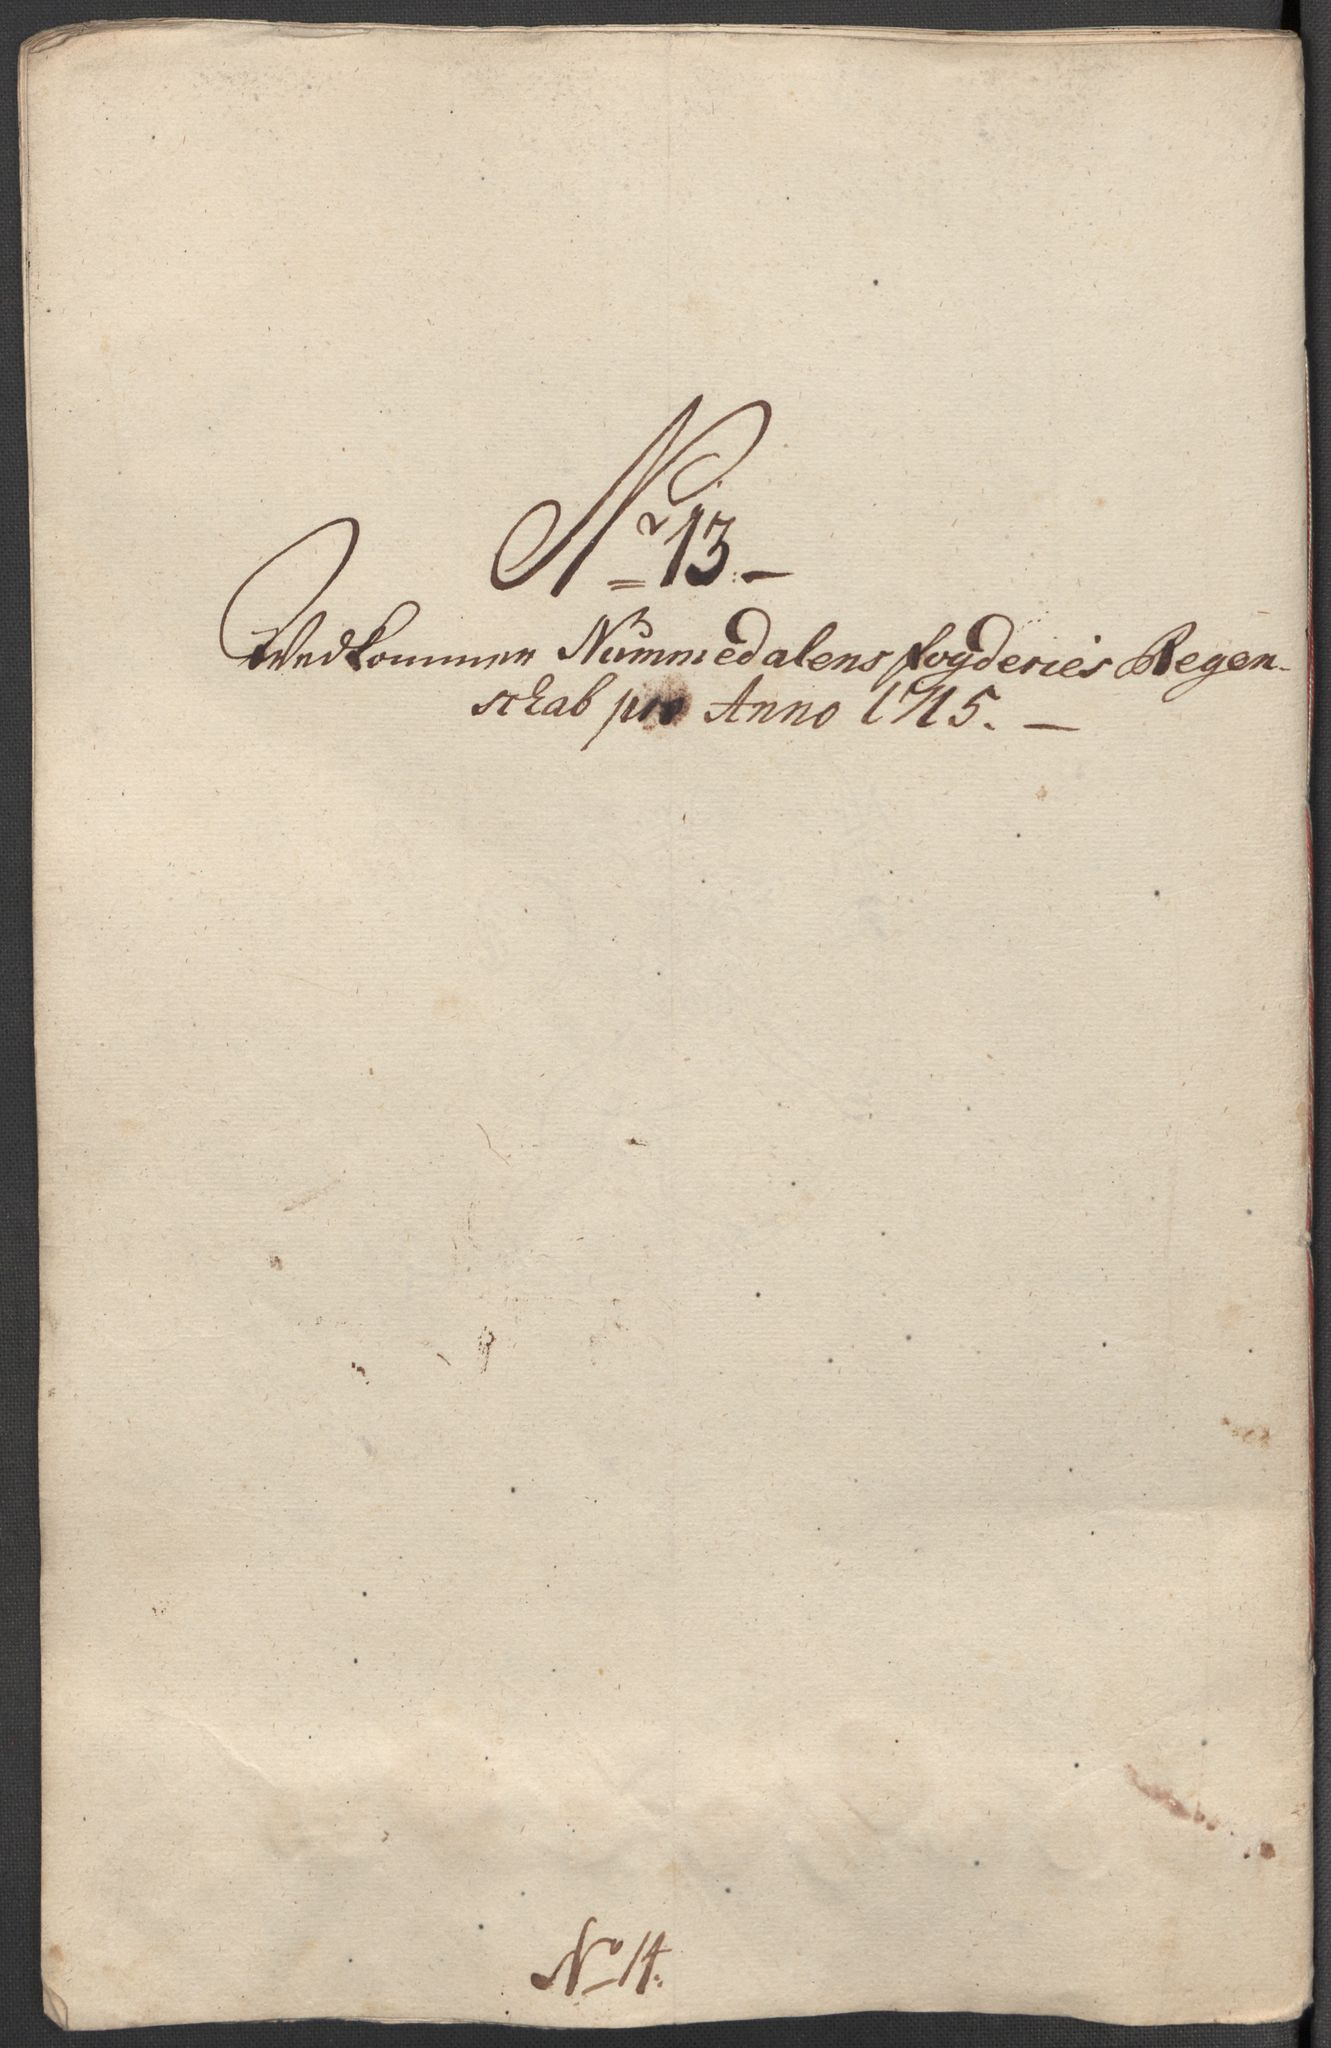 Nr 13.
Vedkommer Nummedalens fogderies Regen-
skab pro Anno 1715.
No 14.